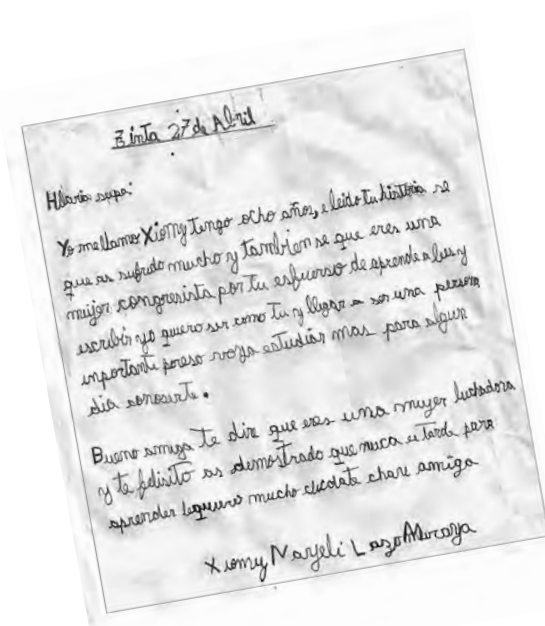 Zinta 27 de Abril
Hilaria supa:
Yo me llamo Xiomy tungo ocho años, e leido tu historia se
que as sufrido mucho y tambien se que eres una
mujer congresista por tu esfuerso de aprende a leer y
escribir yo quiero ser como tu y llgar a ser una persona
inportante poreso voya estudiar mas para algun
dia conoserte.
Bueno amiga te dire que eres una mujer luchadora
y te felisito as demostrado que nuca es tarde para
aprender tequiero mucho cuidate chare amiga
Xiomy Nayeli Lazo Moraya